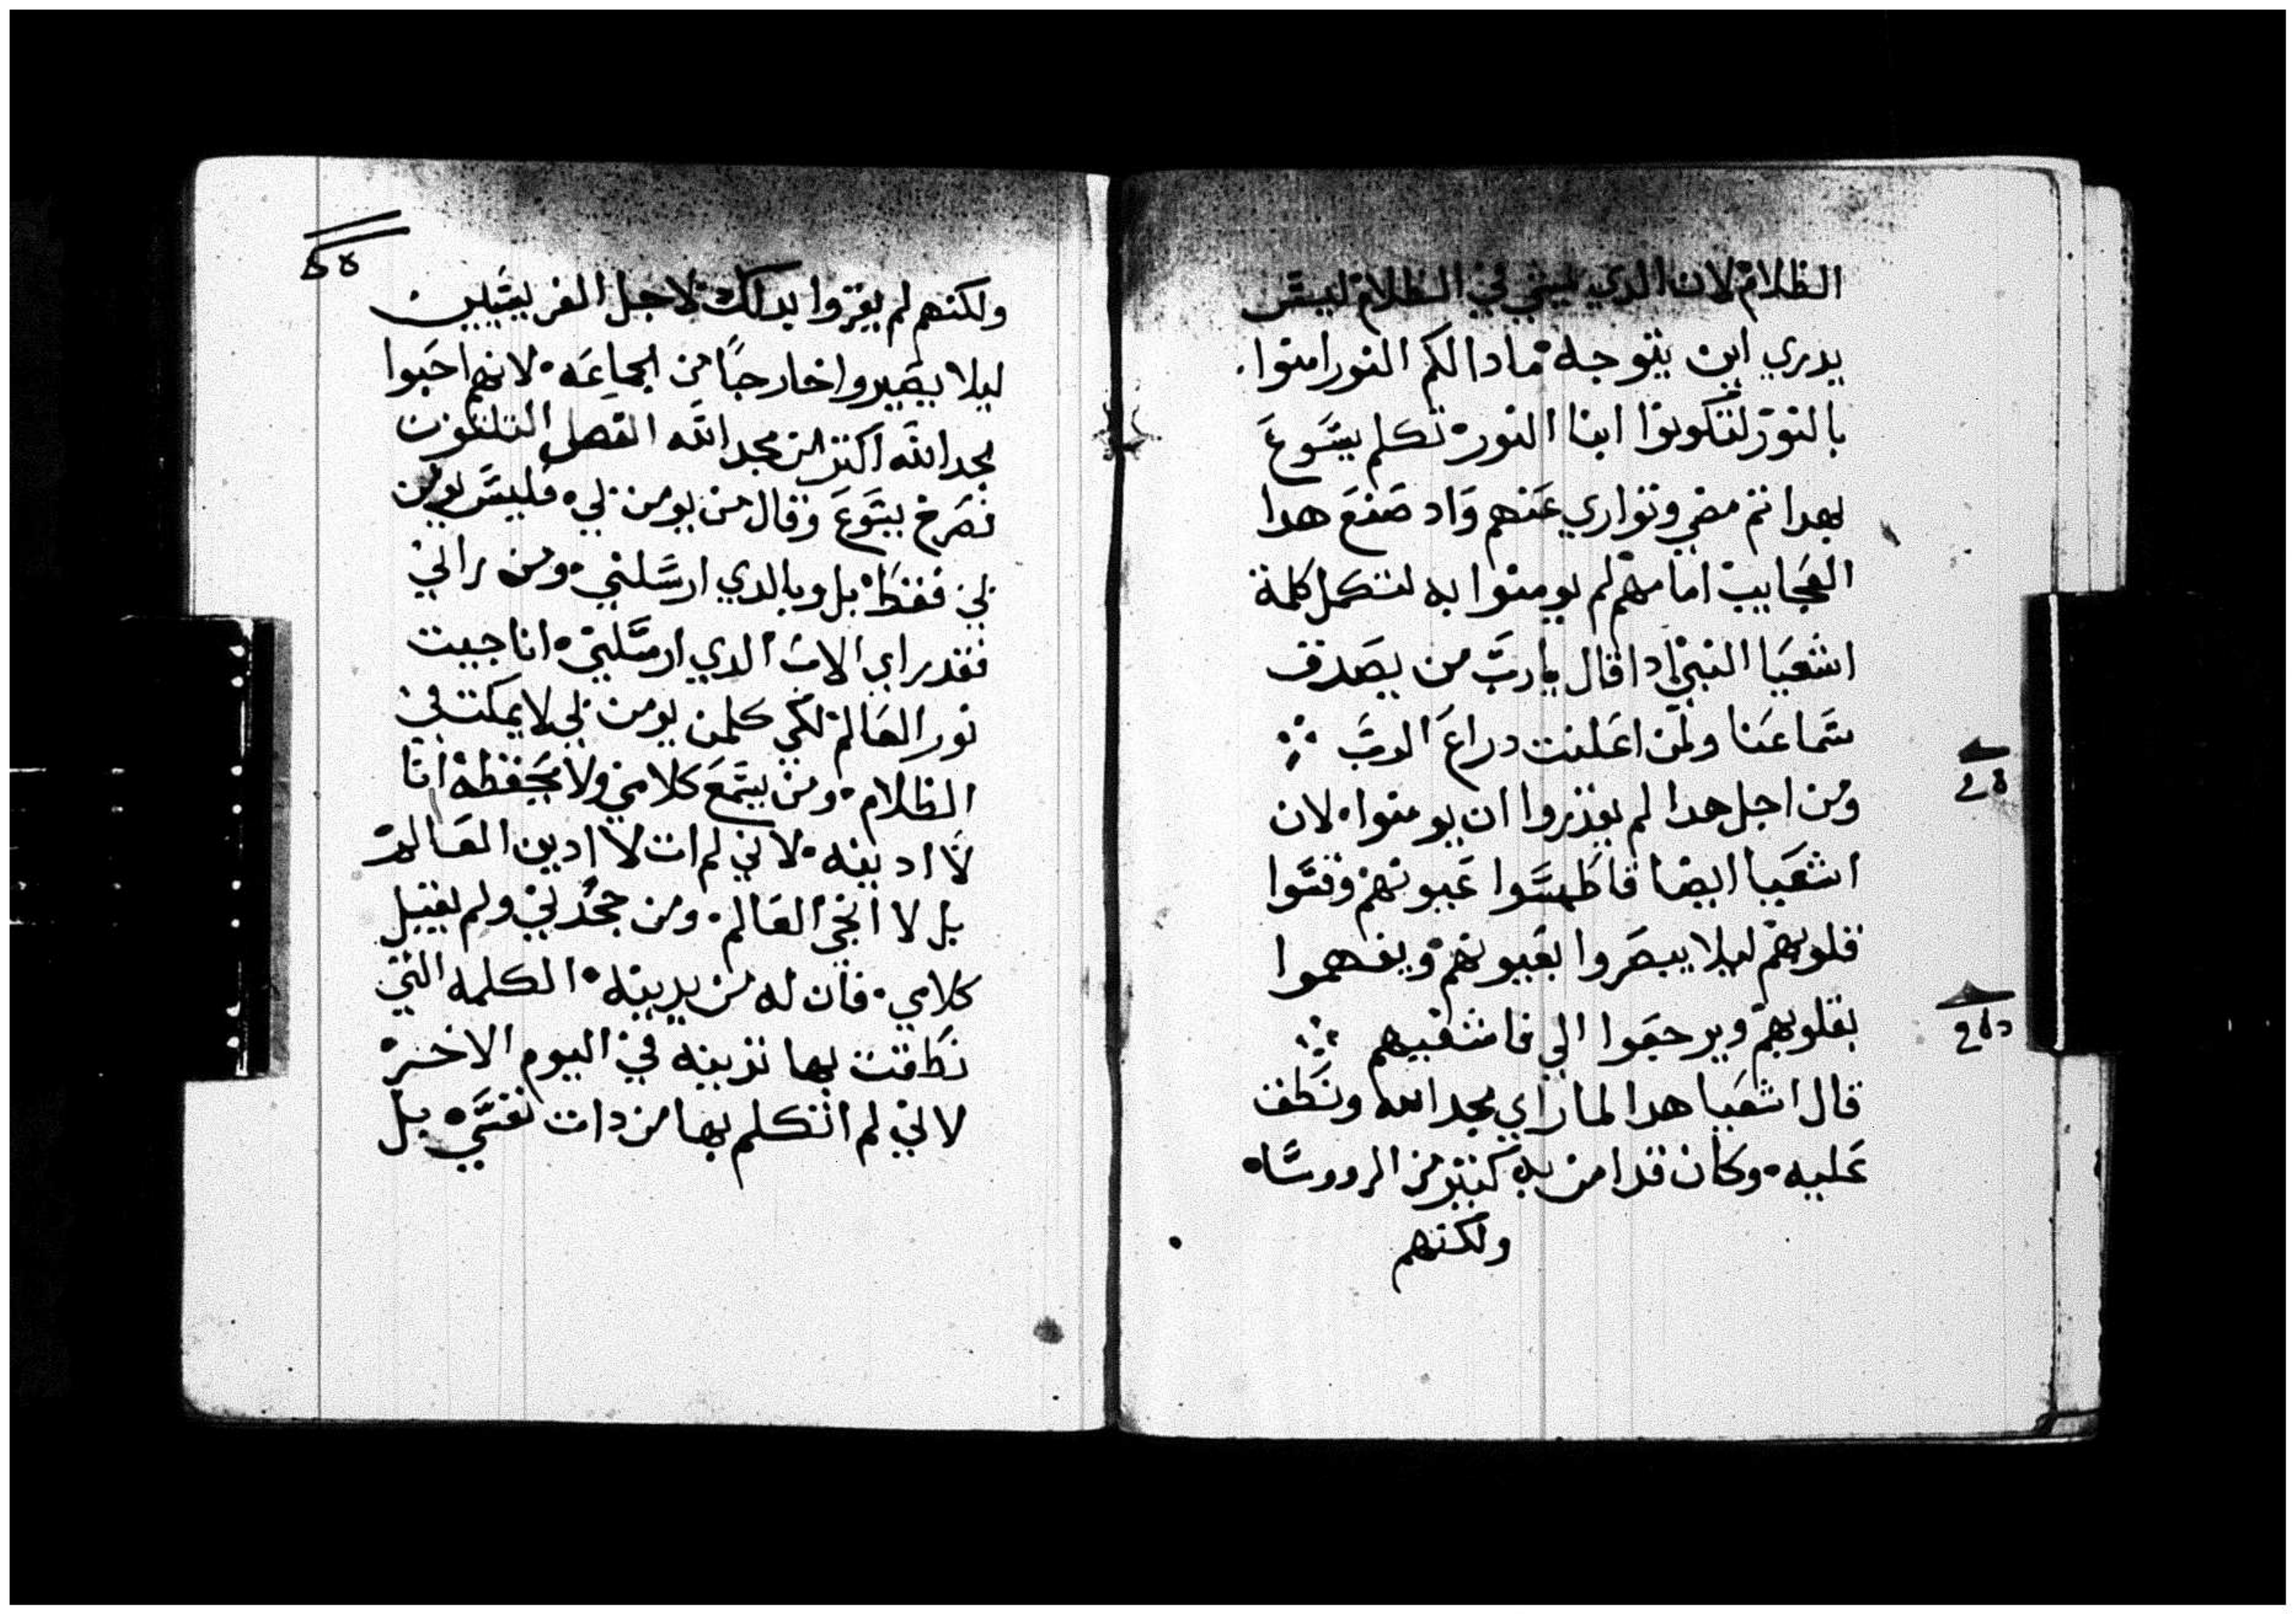 الظلام لان الدي يمشي في الظلام ليس
يدري اين يتوجه مادا لكم النور امنوا
بالنور لتكونوا ابنا النور تكلم يسوع
بهدا تم مضي وتواري عنهم واد صنع هدا
العجايب امامهم لم يومنوا به لتكمل كلمة
اشعيا النبي ادا قال يارب من يصدق
سماعنا ولمن اعلنت دراع الرب
ومن اجل هدا لم يقدروا ان يومنوا لان
اشعيا ايضا قا طمسوا عيونهم وقسوا
قلوبهم ليلا يبصروا بعيونهم ويفهموا
بقلوبهم ويرجعوا الي فاشفيهم
قال اشعيا هدا لما راي مجد الله ونطق
عليه وكان قد امن به كتير من الرووسا
ولكنهم
ولكنهم لم يقروا بدلك لاجل الفريسيين
ليلا يصيروا خارجا من الجماعه لانهم احبوا
مجد الله اكتر من مجد الله الفصل
فصرخ يسوع وقال من يومن بي فليس يومن
بي فقط بل وبالدي ارسلني ومن راني
فقد راي الاب الدي ارسلني انا جيت
نور العالم لكي كلمن يومن بي لا يمكت في
الظلام ومن يسمع كلامي ولا يحفظه انا
لا ادينه لاني لم ات لا ادين العالم
بل لا انجي العالم ومن جحدني ولم يقبل
كلامي فان له من يدينه الكلمه التي
نطقت بها تدينه في اليوم الاخير
لاني لم اتكلم بها من دات نفسي بل